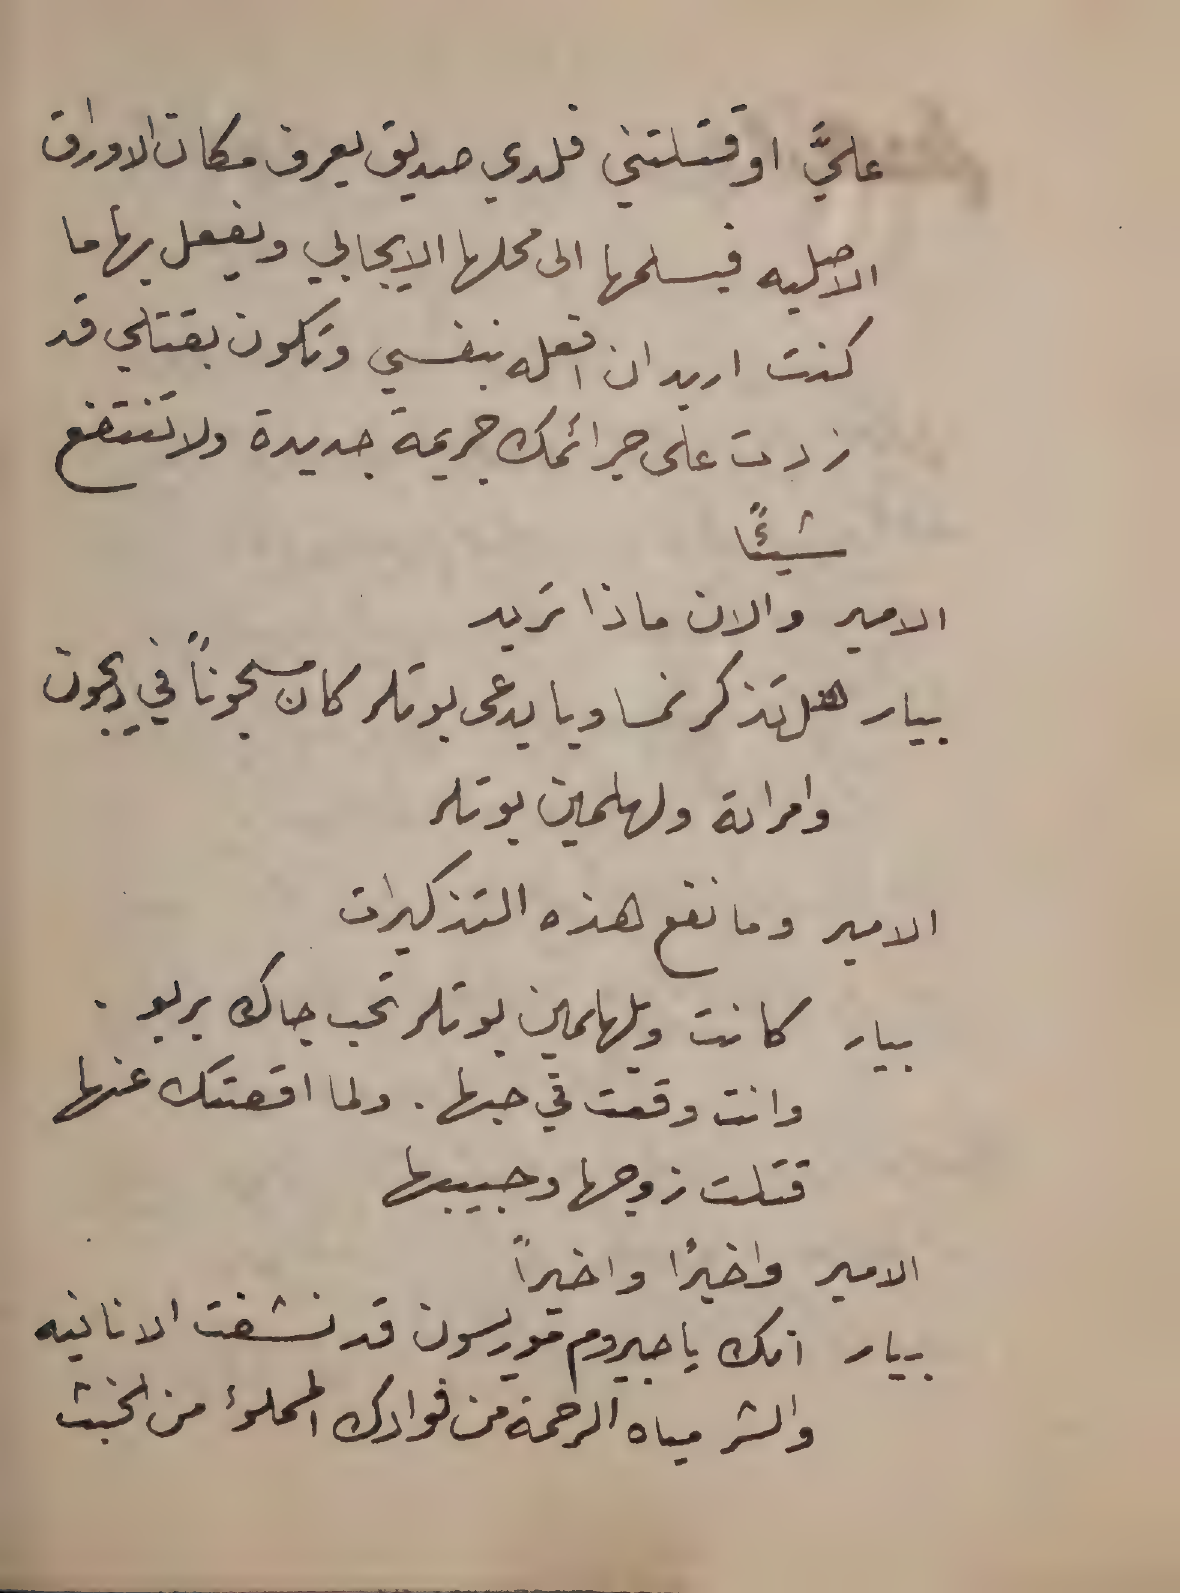 عليَّ او قتلتني فلدي صديق يعرف مكان الاوراق
الاصليه فيسلمها الى محلها الايجابي ويفعل بها ما
كنت اريد ان افعله بنفسي وتكون بقتلي قد
زدت على جرائمك جريمة جديدة ولا تنتفع
شيئًا
الامير والان ماذا تريد
بيار هل تذكر نمساويا يدعى بوتلر كان مسجوناً في ديجون
وامراته ولهلمين بوتلر
الامير وما نفع هذه التذكيرات
بيار كانت ويلهلمين بوتلر تحب جاك بريو .
وانت وقعت في حبها . ولما اقصتك عنها
قتلت زوجها وحبيبها
الامير واخيرًا واخيراً
بيار انك يا جيروم قد نشفت الانانيه
والشر مياه الرحمة من فوادك المملوء من الخبث